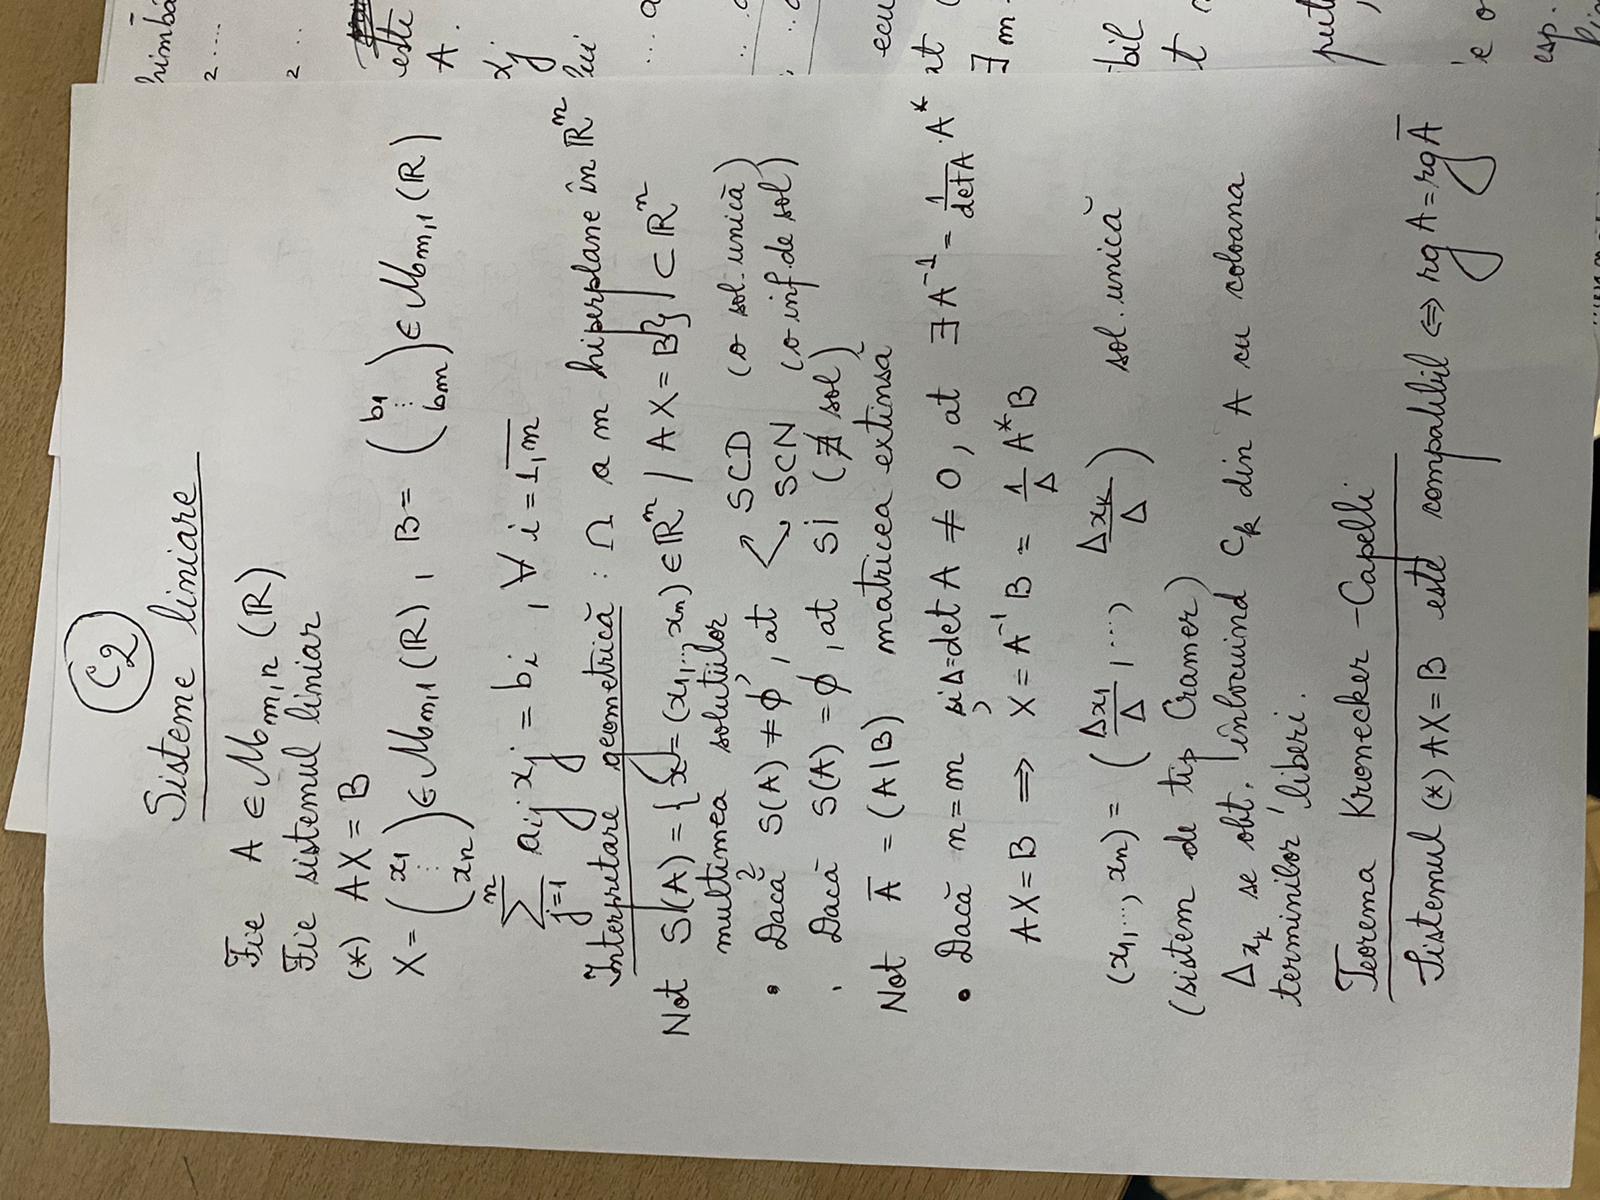 C2
Sisteme liniare
Fie A ∈ M_{m,n} (ℝ)
Fie sistemul liniar
(*) AX = B
X = (x1 ⋮ xn) ∈ M_{m,1} (ℝ), B = (b1 ⋮ bm) ∈ M_{m,1} (ℝ)
∑_{j=1}^{n} a_{ij} x_j = b_i , ∀ i = \overline{1,m}
Interpretare geometrică : ∩ a m hiperplane în ℝ^n
Not S(A) = { x = (x1,..., xn) ∈ ℝ^n / AX = B } ⊂ ℝ^n
multimea soluțiilor
• Dacă S(A) ≠ ∅, at SCD (o sol. unică)
SCN (o inf. de sol)
• Dacă S(A) = ∅, at SI (∄ sol)
Not \overline{A} = (A|B) matricea extinsă
• Dacă n = m și Δ = det A ≠ 0, at ∃ A^{-1} = \frac{1}{det A} · A^*
AX = B ⟹ X = A^{-1} B = \frac{1}{Δ} A^* B
(x1,..., xn) = ( \frac{Δx1}{Δ}, ..., \frac{Δxk}{Δ} ) sol. unică
(sistem de tip Cramer)
Δ_{x_k} se obt. înlocuind C_k din A cu coloana
terminilor liberi.
Teorema Kronecker - Capelli
Sistemul (*) AX = B este compatibil ⇔ rg A = rg \overline{A}
2 ....
2 ..
este
A.
xj
lui
... a
ecu
at
∃ m
bil
t
e o
esp.